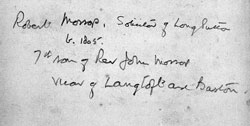 Robert Mossop, Solicitor of Long Sutton
b. 1805.
7th son of Rev John Mossop
Vicar of Langtoft and Baston.